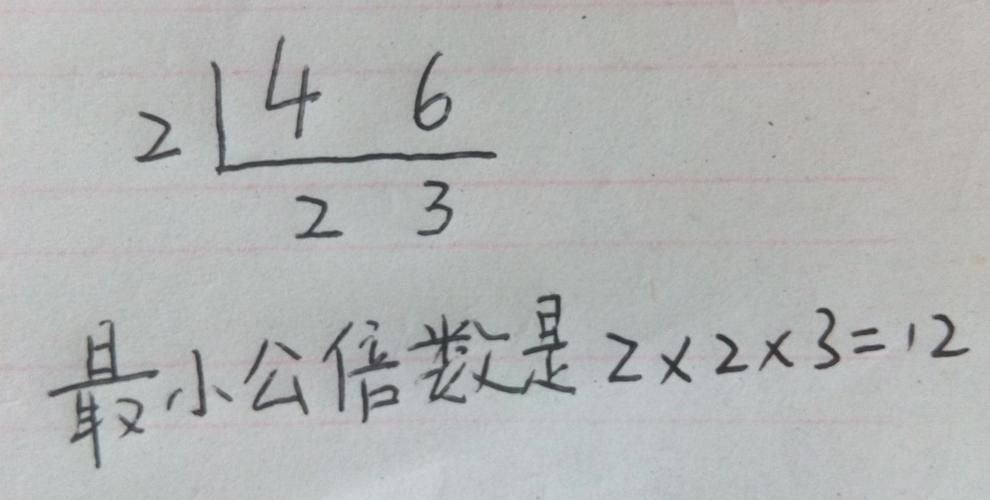 2 4 6
2 3
最小公倍数是2×2×3=12